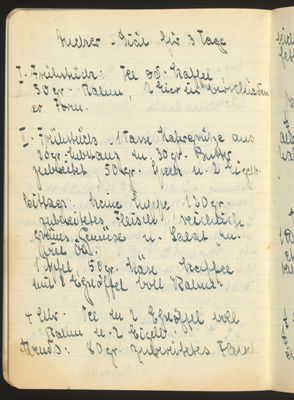 Zucker-Diät für 3 Tage
I. Frühstück: Tee od. Kaffee
50 gr. Rahm 2 Eier in verschieden
er Form.
II. Frühstück. 1 Tasse Hafergrütze aus
20 gr. u. 30 gr. Butter
zubereitet 50 gr. Speck u. 2 Eigelb
Mittags: keine Suppe 150 gr.
zubereitetes Fleisch reichlich
grünes Gemüse u. Salat
viel Öl.
1 Apfel 50 gr. Käse Kaffee
mit 2 Eßlöffel voll Rahm.
4 Uhr. Tee m. 2 Eßlöffel voll
Rahm u. 2 Eigelb.
Abends: 80 gr. zubereitetes Fleisch